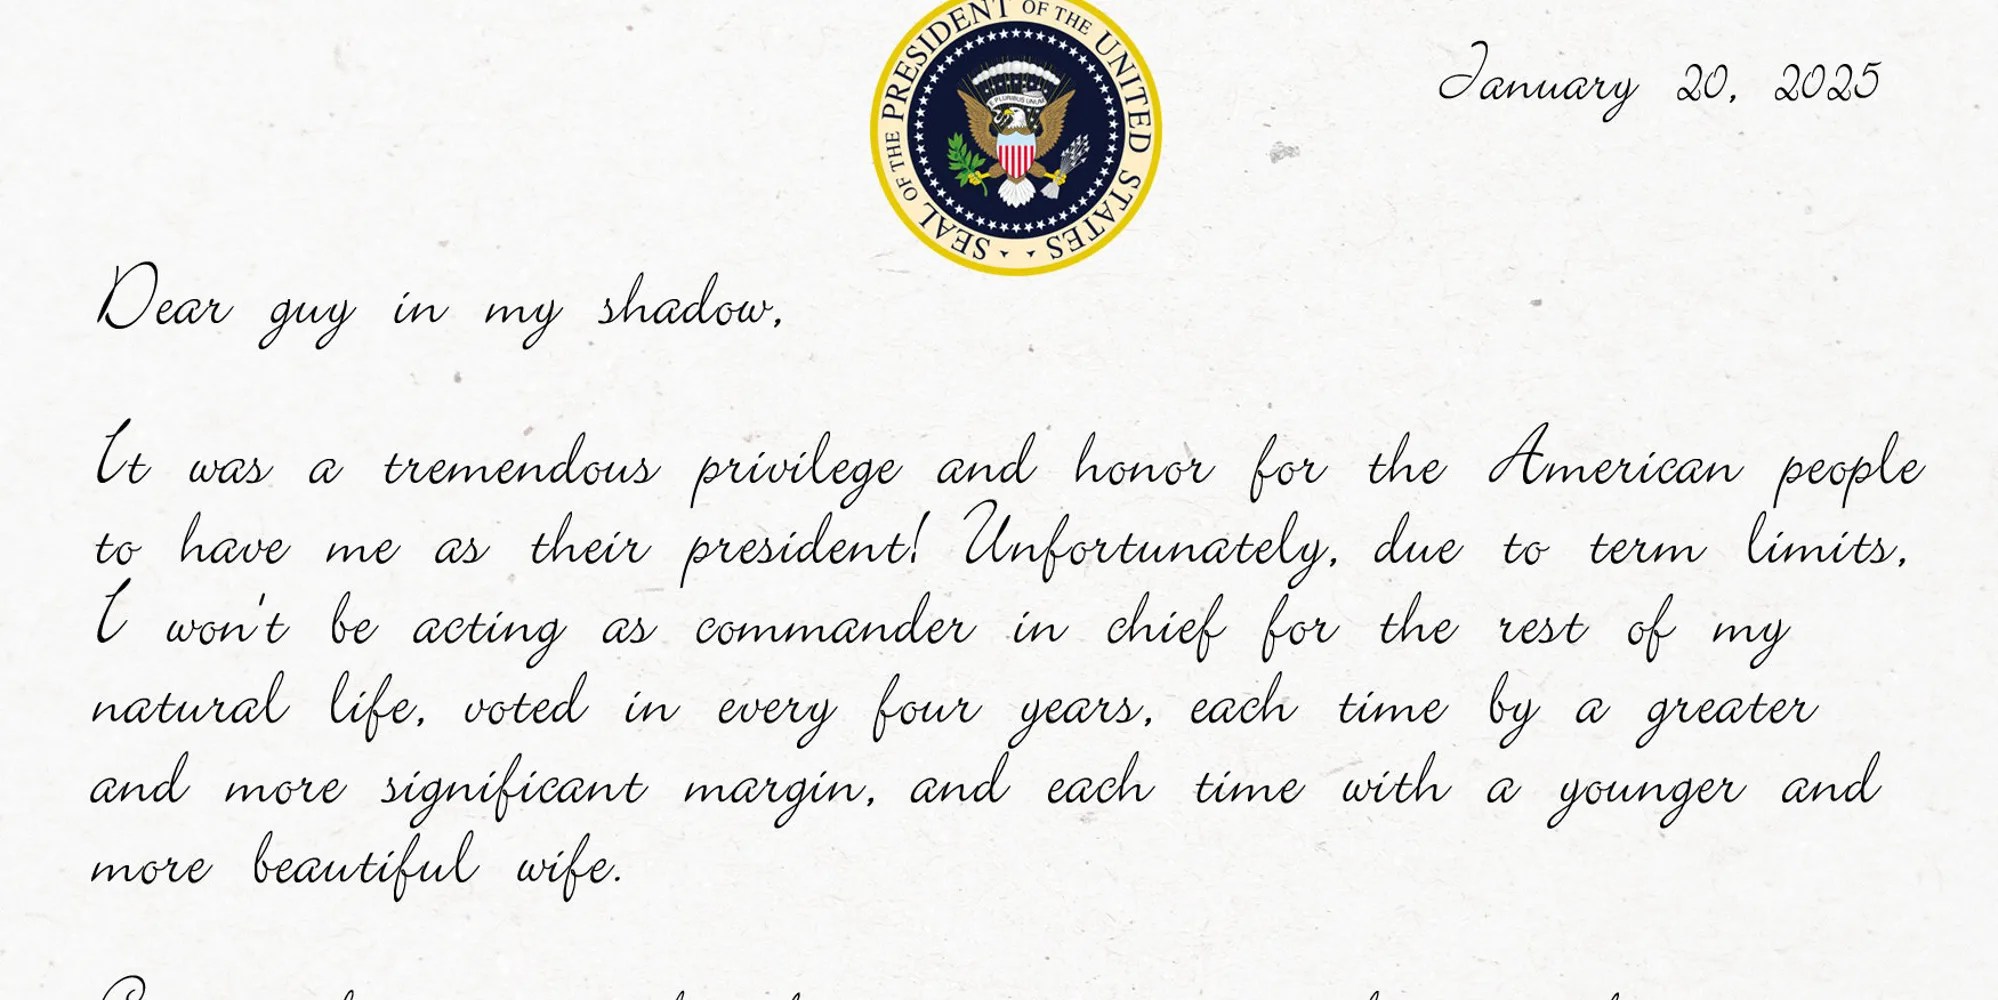 SEAL OF THE PRESIDENT OF THE UNITED STATES
E PLURIBUS UNUM
January 20, 2025
Dear guy in my shadow,
It was a tremendous privilege and honor for the American people
to have me as their president! Unfortunately, due to term limits,
I won't be acting as commander in chief for the rest of my
natural life, voted in every four years, each time by a greater
and more significant margin, and each time with a younger and
more beautiful wife.